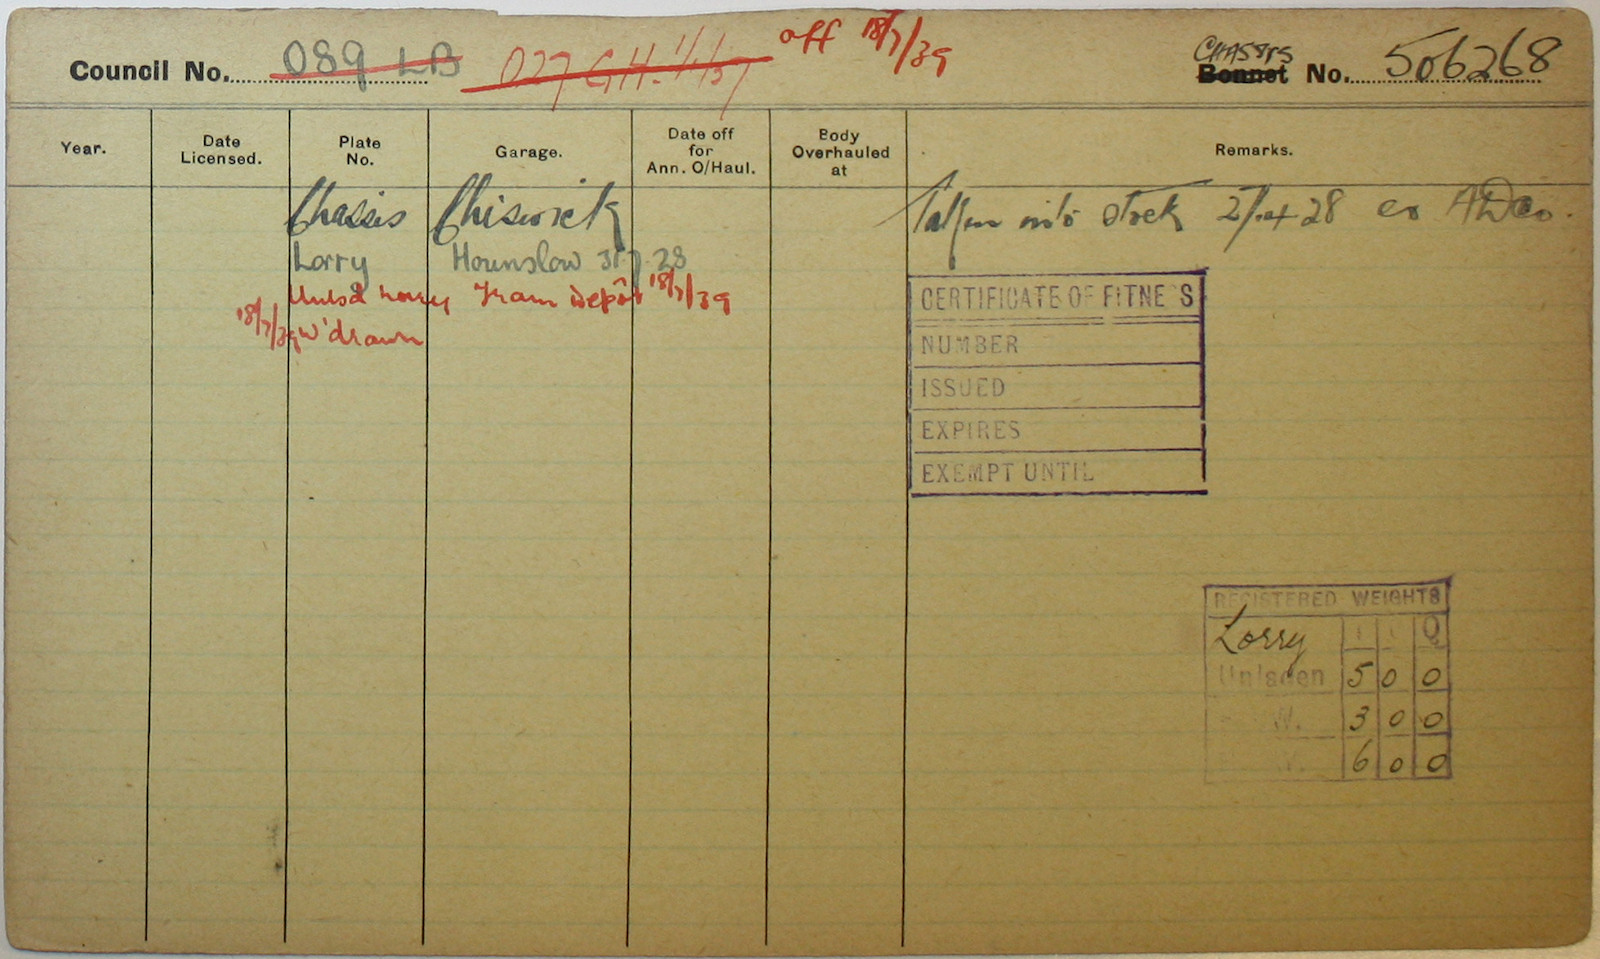 Council No. 089 LB 027 GH. 1/1/37 off 18/7/39 CHASSIS Bonnet No. 506268
Year. Date Licensed. Plate No. Garage. Date off for Ann. O/Haul. Body Overhauled at Remarks.
Chassis Chiswick Taken into stock 27.4.28 ex ADCo.
Lorry Hounslow 31.7.28
Lorry Tram Depôt 18/7/39
18/7/39 W'drawn
CERTIFICATE OF FITNESS
NUMBER
ISSUED
EXPIRES
EXEMPT UNTIL
REGISTERED WEIGHTS
Lorry Q
Unladen 5 0 0
W. 3 0 0
6 0 0